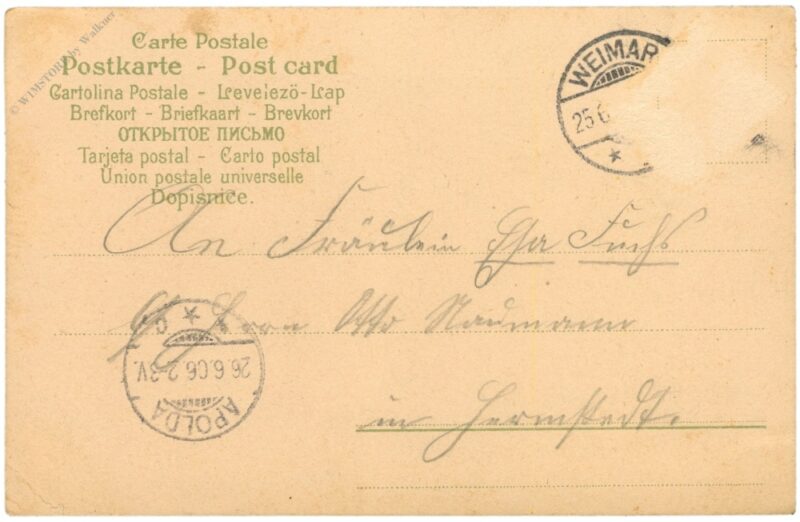 © W1MSTORE by Walkner
Carte Postale
Postkarte - Post card
Cartolina Postale - Levelező-Lap
Brefkort - Briefkaart - Brevkort
ОТКРЫТОЕ ПИСЬМО
Tarjeta postal - Carto postal
Union postale universelle
Dopisnice.
WEIMAR
25.6
An Fräulein Fuchs
Herrn Otto Naumann
in Hermstedt.
APOLDA
26.6.06.2-3V.
c